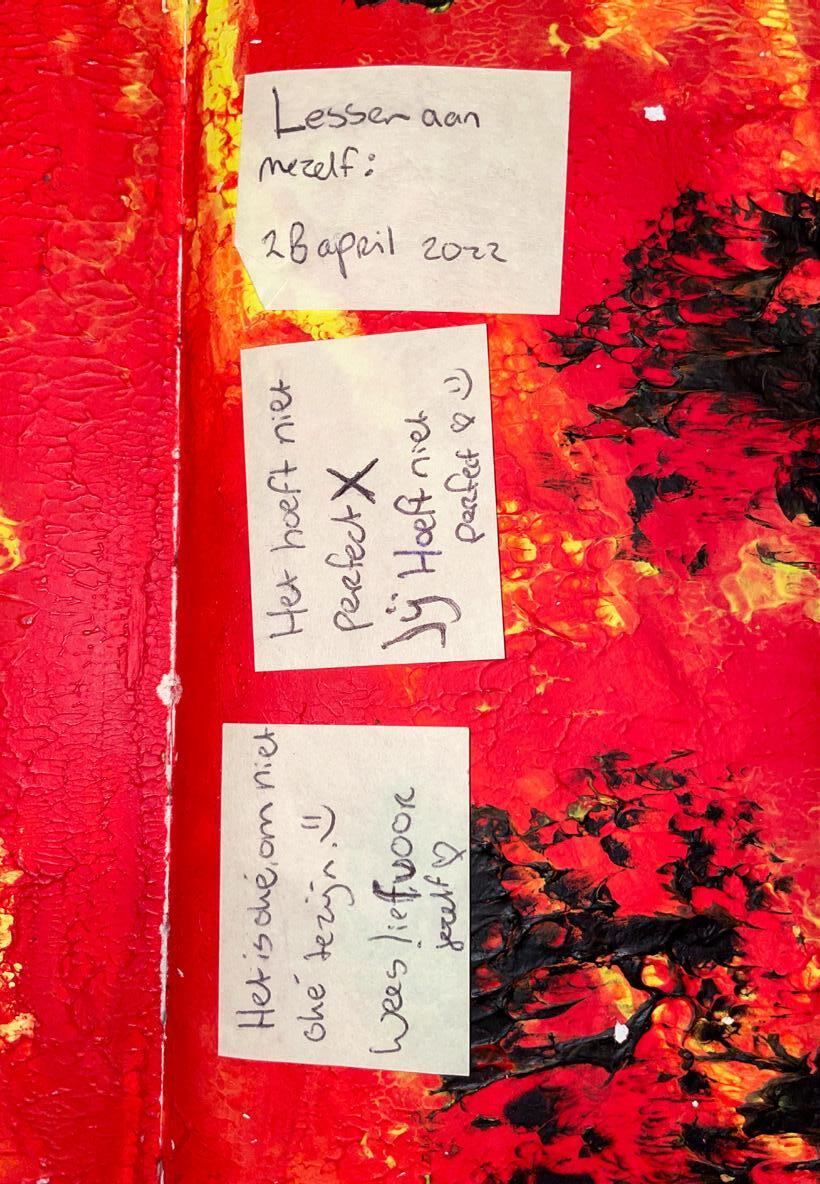 Lessen aan
mezelf:
28 april 2022
Het hoeft niet
perfect X
Jij Hoeft niet
perfect ♡ :)
Het is oké, om niet
oké te zijn! :)
Wees lief, voor
jezelf ♡